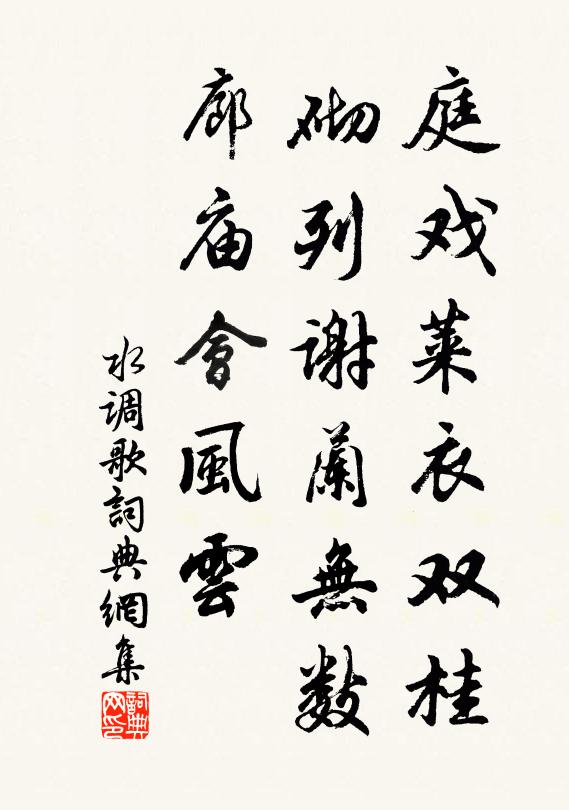 庭戏莱衣双桂
砌列谢蘭無数
廊庙會風雲
水调歌詞典網集
詞典网印